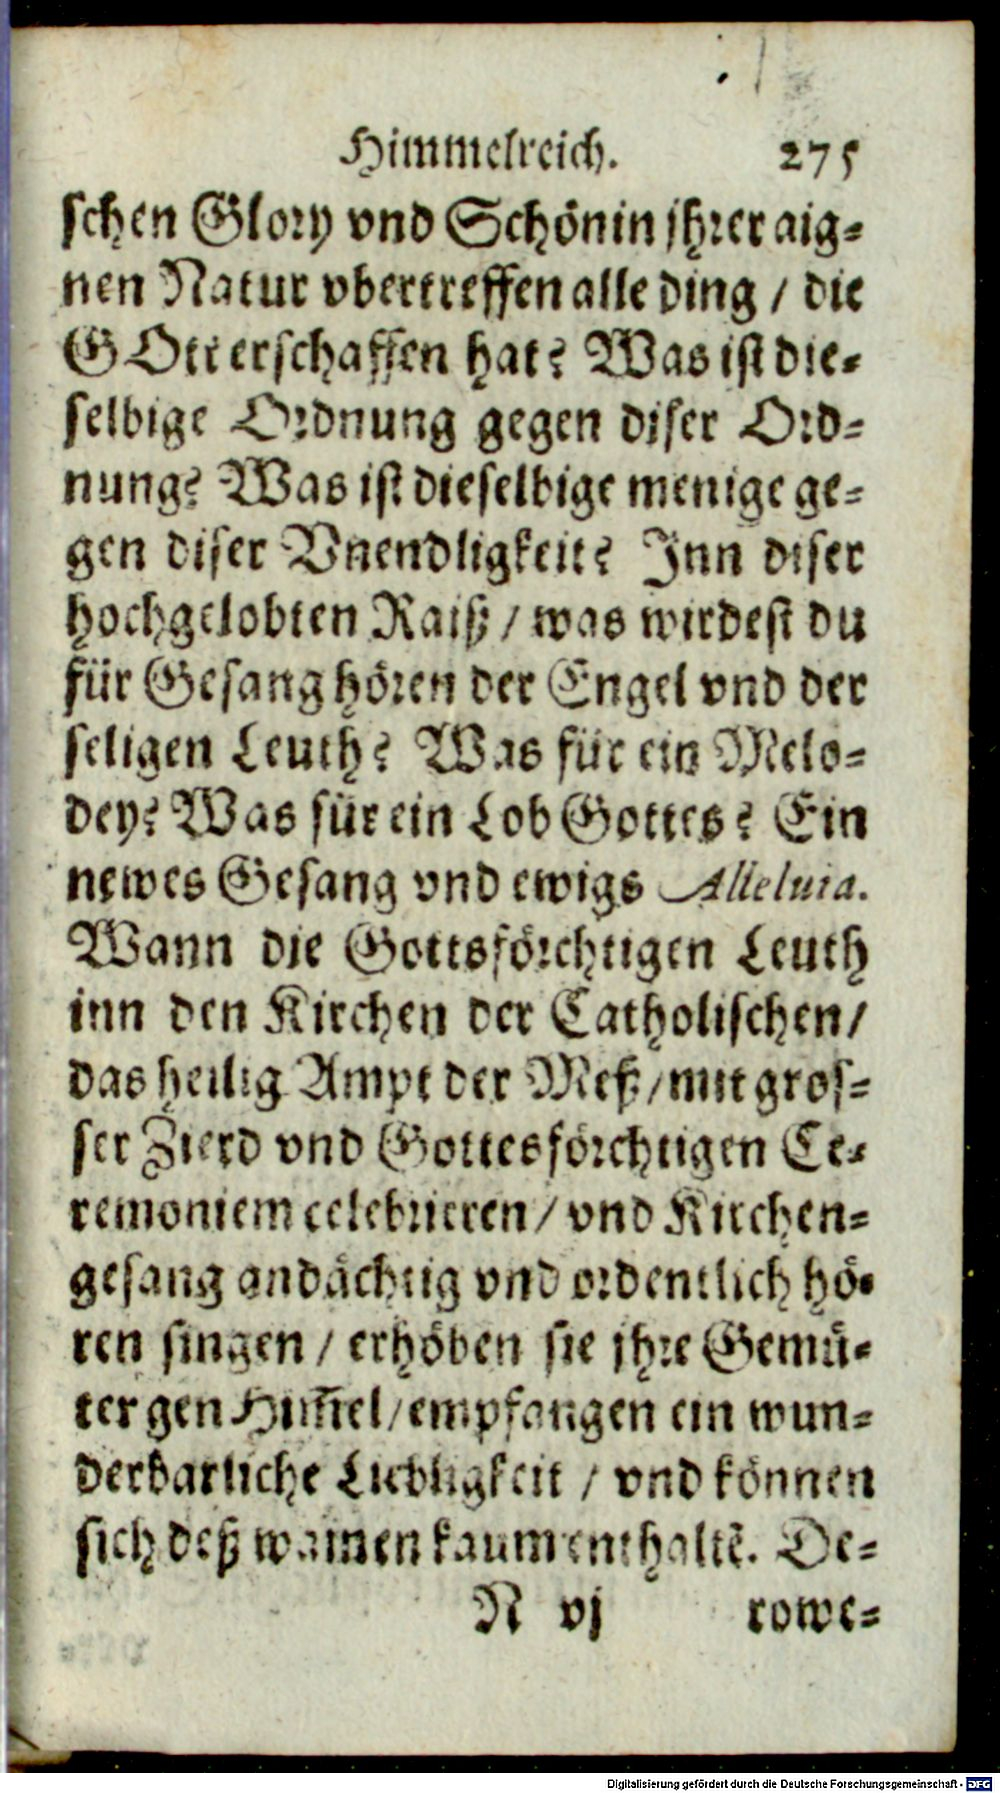 Himmelreich. 275
schen Glory vnd Schön in jhrer aig-
nen Natur vbertreffen alle ding / die
GOtt erschaffen hat? Was ist die-
selbige Ordnung gegen diser Ord-
nung? Was ist dieselbige menige ge-
gen diser Vnendligkeit? Inn diser
hochgelobten Raiß / was wirdest du
für Gesang hören der Engel vnd der
seligen Leuth? Was für ein Melo-
dey? Was für ein Lob Gottes? Ein
newes Gesang vnd ewigs Alleluia.
Wann die Gottsförchtigen Leuth
inn den Kirchen der Catholischen /
das heilig Ampt der Meß / mit gros-
ser Zierd vnd Gottesförchtigen Ce-
remoniem celebrieren / vnd Kirchen-
gesang andächtig vnd ordentlich hö-
ren singen / erhöben sie jhre Gemü-
ter gen Him̄el / empfangen ein wun-
derbarliche Liebligkeit / vnd können
sich deß wainen kaum enthaltē. De-
N vj rowe-
Digitalisierung gefördert durch die Deutsche Forschungsgemeinschaft - DFG